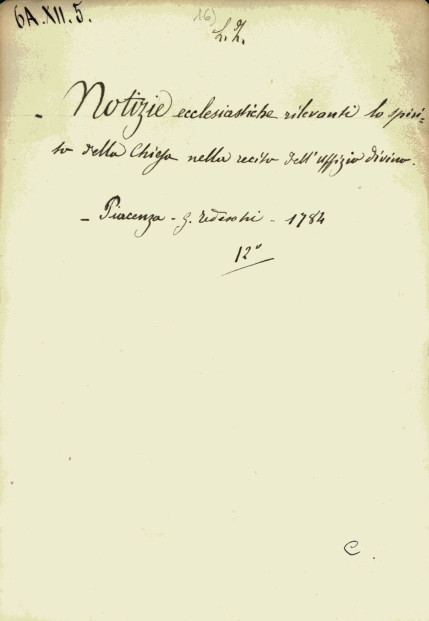 6A.XII.5.
16)
L. Z.
- Notizie ecclesiastiche rilevanti lo spiri-
to della Chiesa nella recita dell'uffizio divino.
- Piacenza - G. Tedeschi - 1784
12°
C.